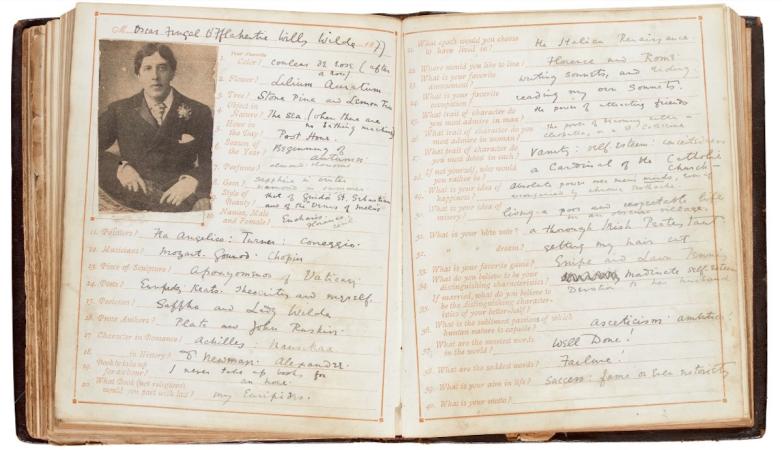 M Oscar Fingal O'Fflahertie Wills Wilde 1877
Your Favorite
1. Color? couleur de rose (after
a rose)
2. Flower? Lilium Auratum
3. Tree? Stone Pine and Lemon Tree
4. Object in
Nature? The sea (when there are
no bathing machines)
5. Hour in
the Day? Post Hour.
6. Season of
the Year? Beginning of
autumn.
7. Perfume? almond blossoms
8. Gem? sapphire in winter
diamond in summer
9. Style of
Beauty? that of Guido's St. Sebastian
and of the Venus of Melos
10. Names, Male
and Female? Eucharis
11. Painters? Fra Angelico: Turner: Correggio.
12. Musicians? Mozart. Gounod. Chopin
13. Piece of Sculpture? Apoxyomenos of Vatican
14. Poets? Euripides, Keats. Theocritus and myself.
15. Poetesses? Sappho and Lady Wilde
16. Prose Authors? Plato and John Ruskin.
17. Character in Romance? Achilles: Nausikaa
18. in History? Dr Newman. Alexander.
19. Book to take up
for an hour? I never take up books for
an hour.
20. What Book (not religious)
would you part with last? my Euripides.
21. What epoch would you choose
to have lived in? the Italian Renaissance.
22. Where would you like to live? Florence and Rome
23. What is your favorite
amusement? writing sonnets, and riding.
24. What is your favorite
occupation? reading my own sonnets.
25. What trait of character do
you most admire in man? the power of attracting friends
26. What trait of character do you
most admire in woman? the power of becoming either a
Cleopatra or a St Catherine
27. What trait of character do
you most detest in each? Vanity: self esteem: conceitedness
28. If not yourself, who would
you rather be? a Cardinal of the Catholic
Church
29. What is your idea of
happiness? Absolute power over men's minds, even if
accompanied by chronic toothache
30. What is your idea of
misery? living a poor and respectable life
in an obscure village.
31. What is your bête noire? a thorough Irish Protestant
32. " " dream? getting my hair cut
33. What is your favorite game? Snipe and Lawn Tennis
34. What do you believe to be your
distinguishing characteristics? inordinate self-esteem
35. If married, what do you believe to
be the distinguishing character-
istics of your better-half? Devotion to her husband
36. What is the sublimest passion of which
human nature is capable? asceticism. ambition!
37. What are the sweetest words
in the world? Well Done!
38. What are the saddest words? Failure!
39. What is your aim in life? Success: fame or even notoriety
40. What is your motto?